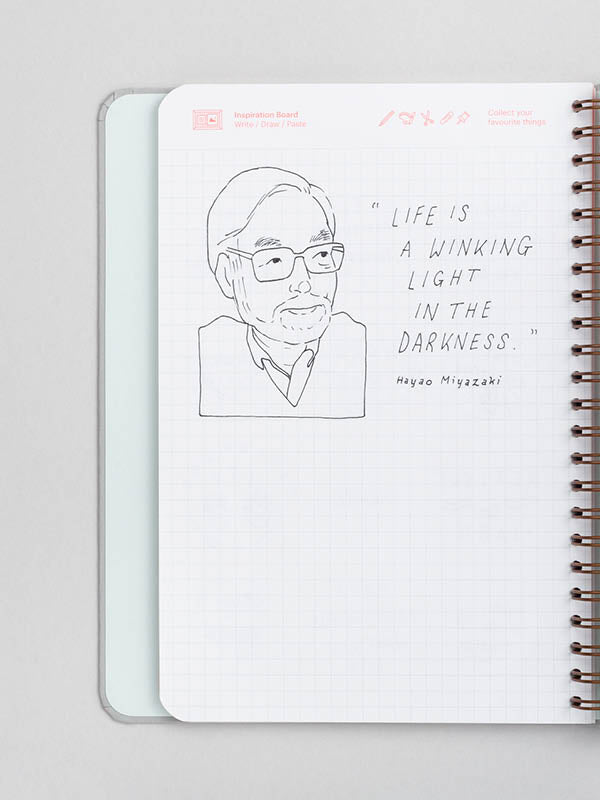 Inspiration Board
Write / Draw / Paste
Collect your
favourite things
“ LIFE IS
A WINKING
LIGHT
IN THE
DARKNESS. ”
Hayao Miyazaki